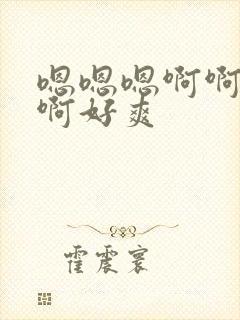 嗯嗯嗯啊啊
啊好爽
霍震寰